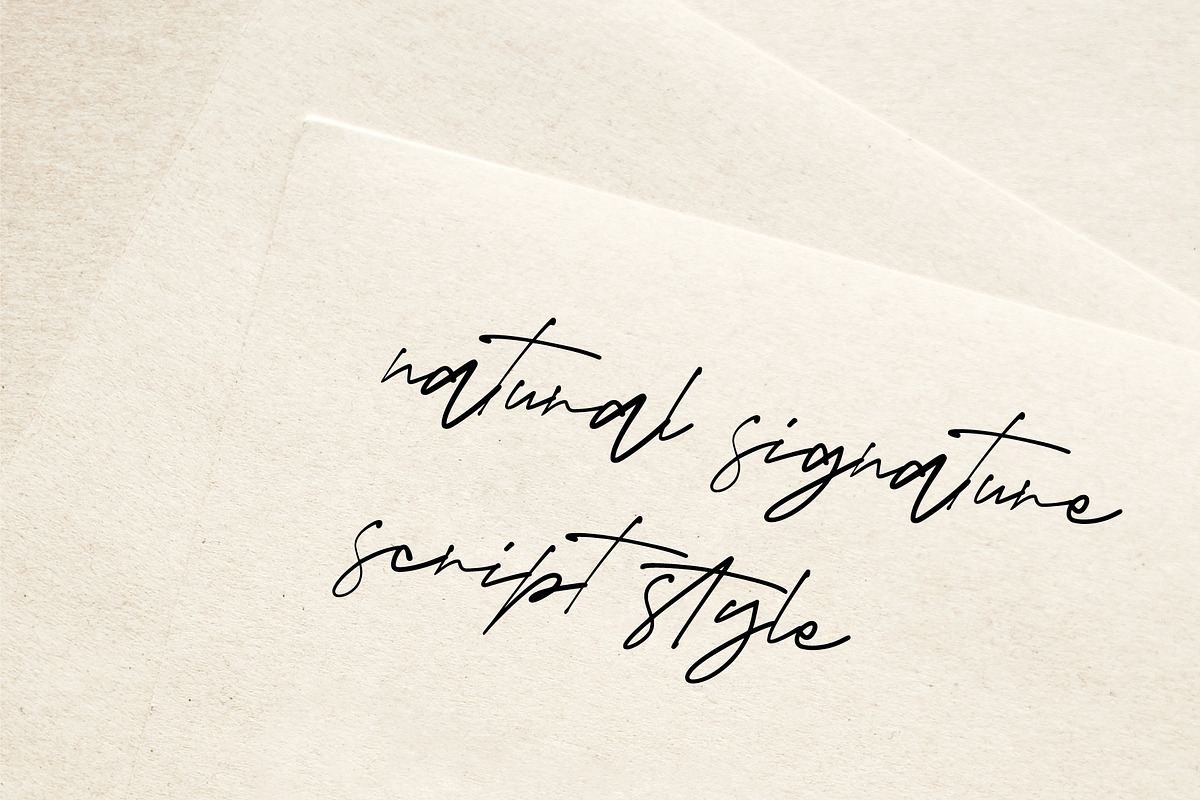 natural signature
script style